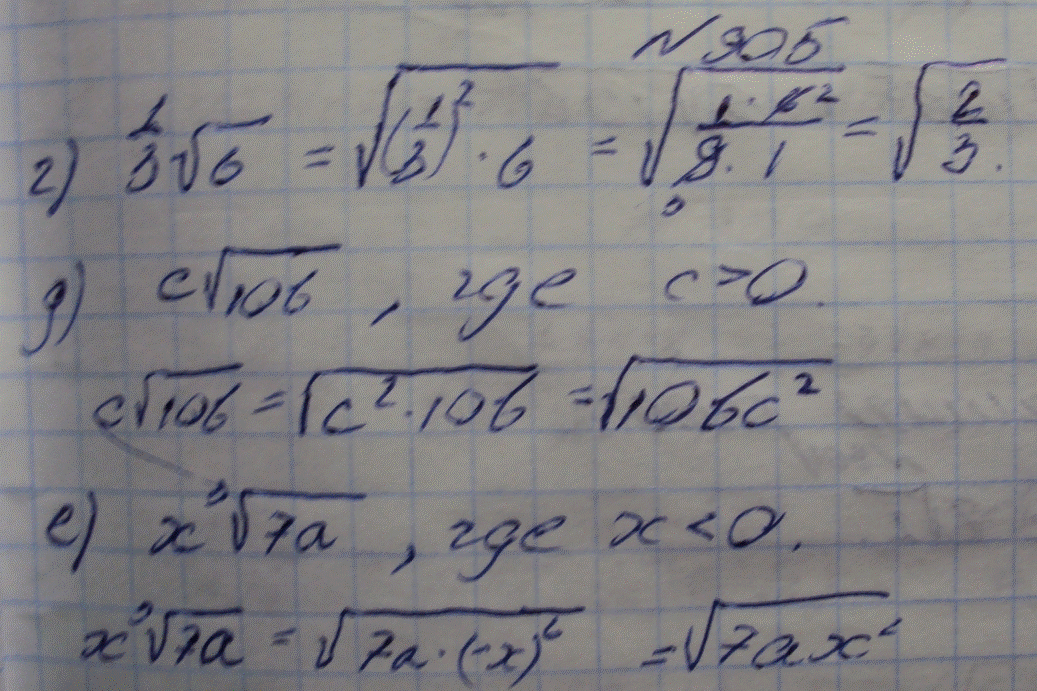 № 905
г) 1/3 √6 = √((1/3)² · 6) = √(1 · 6 2 / 9 · 1 3) = √(2/3).
д) c√10b , где c > 0.
c√10b = √(c² · 10b) = √(10bc²)
е) x³√7a , где x < 0.
x³√7a = √(7a · (-x)⁶) = √(7ax²)